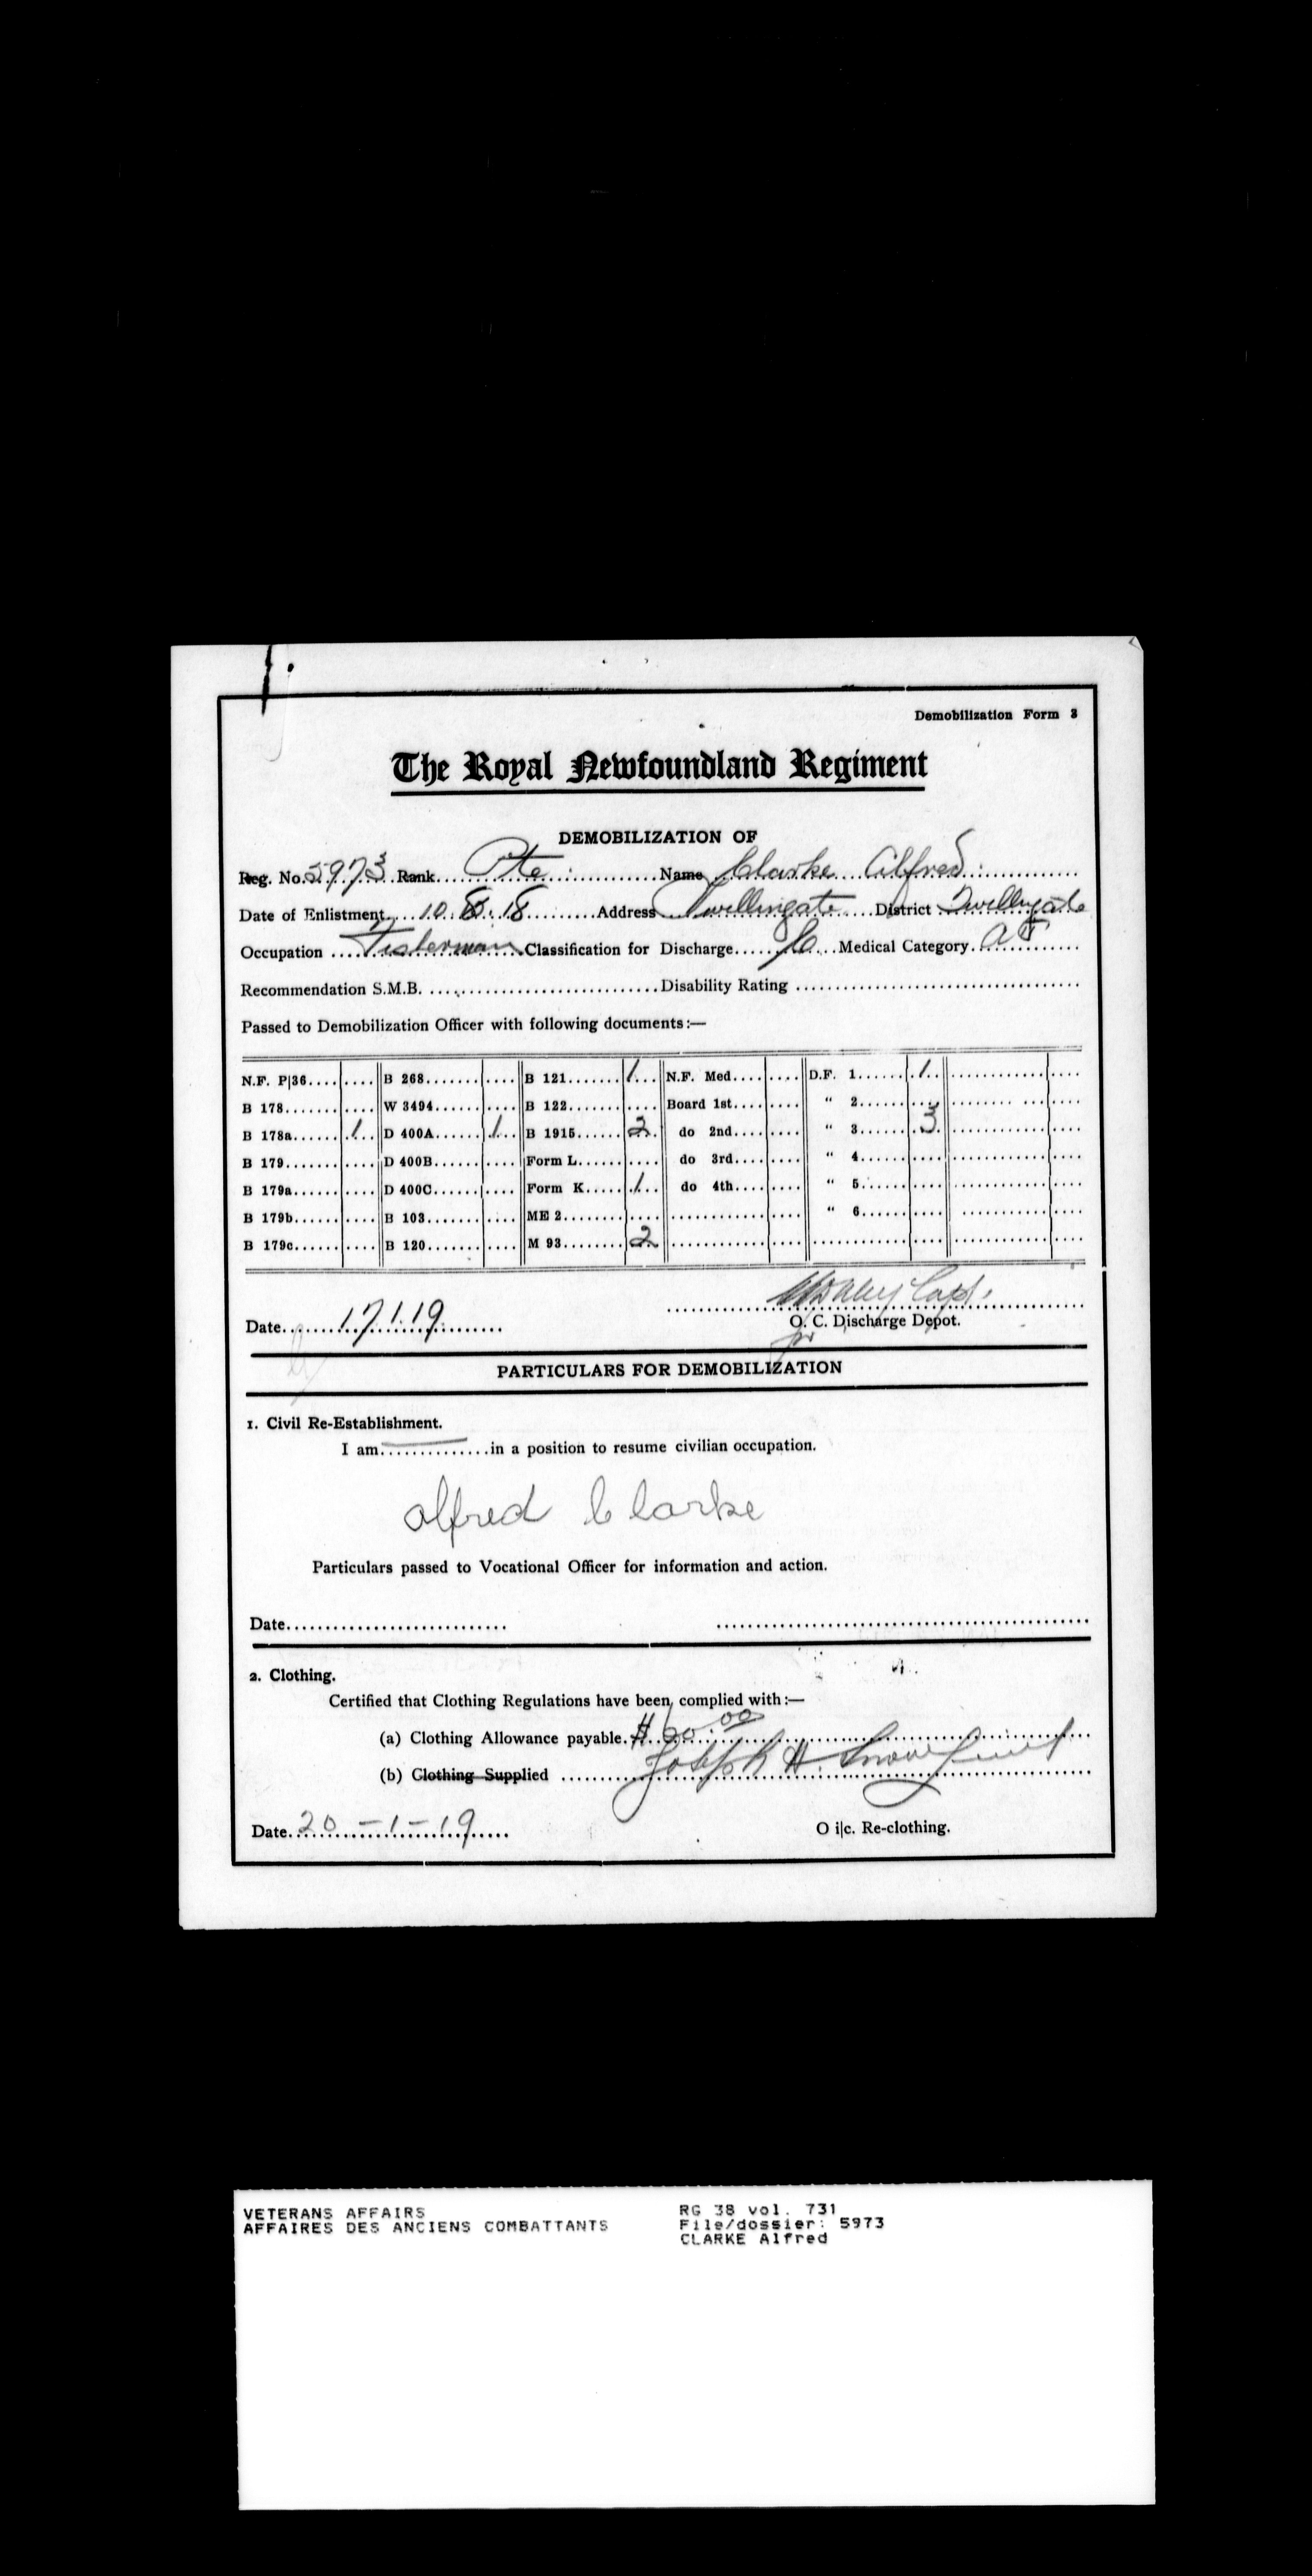 Demobilization Form 3
The Royal Newfoundland Regiment
DEMOBILIZATION OF
Reg. No. 5973 Rank Pte Name Clarke Alfred
Date of Enlistment 10.8.18 Address Twillingate District Twillingate
Occupation Fisherman Classification for Discharge Medical Category
Recommendation S.M.B. Disability Rating
Passed to Demobilization Officer with following documents:—
N.F. P|36 B 268 B 121 1 N.F. Med. D.F. 1 1
B 178 W 3494 B 122 Board 1st " 2
B 178a 1 D 400A 1 B 1915 2 do 2nd " 3 3
B 179 D 400B Form L do 3rd " 4
B 179a D 400C Form K 1 do 4th " 5
B 179b B 103 ME 2 " 6
B 179c B 120 M 93 2
Date 17.1.19 O. C. Discharge Depot.
PARTICULARS FOR DEMOBILIZATION
1. Civil Re-Establishment.
I am in a position to resume civilian occupation.
Alfred Clarke
Particulars passed to Vocational Officer for information and action.
Date
2. Clothing.
Certified that Clothing Regulations have been complied with:—
(a) Clothing Allowance payable $60.00
(b) Clothing Supplied Joseph H. Snow
Date 20-1-19 O i|c. Re-clothing.
VETERANS AFFAIRS RG 38 vol. 731
AFFAIRES DES ANCIENS COMBATTANTS File/dossier: 5973
CLARKE Alfred